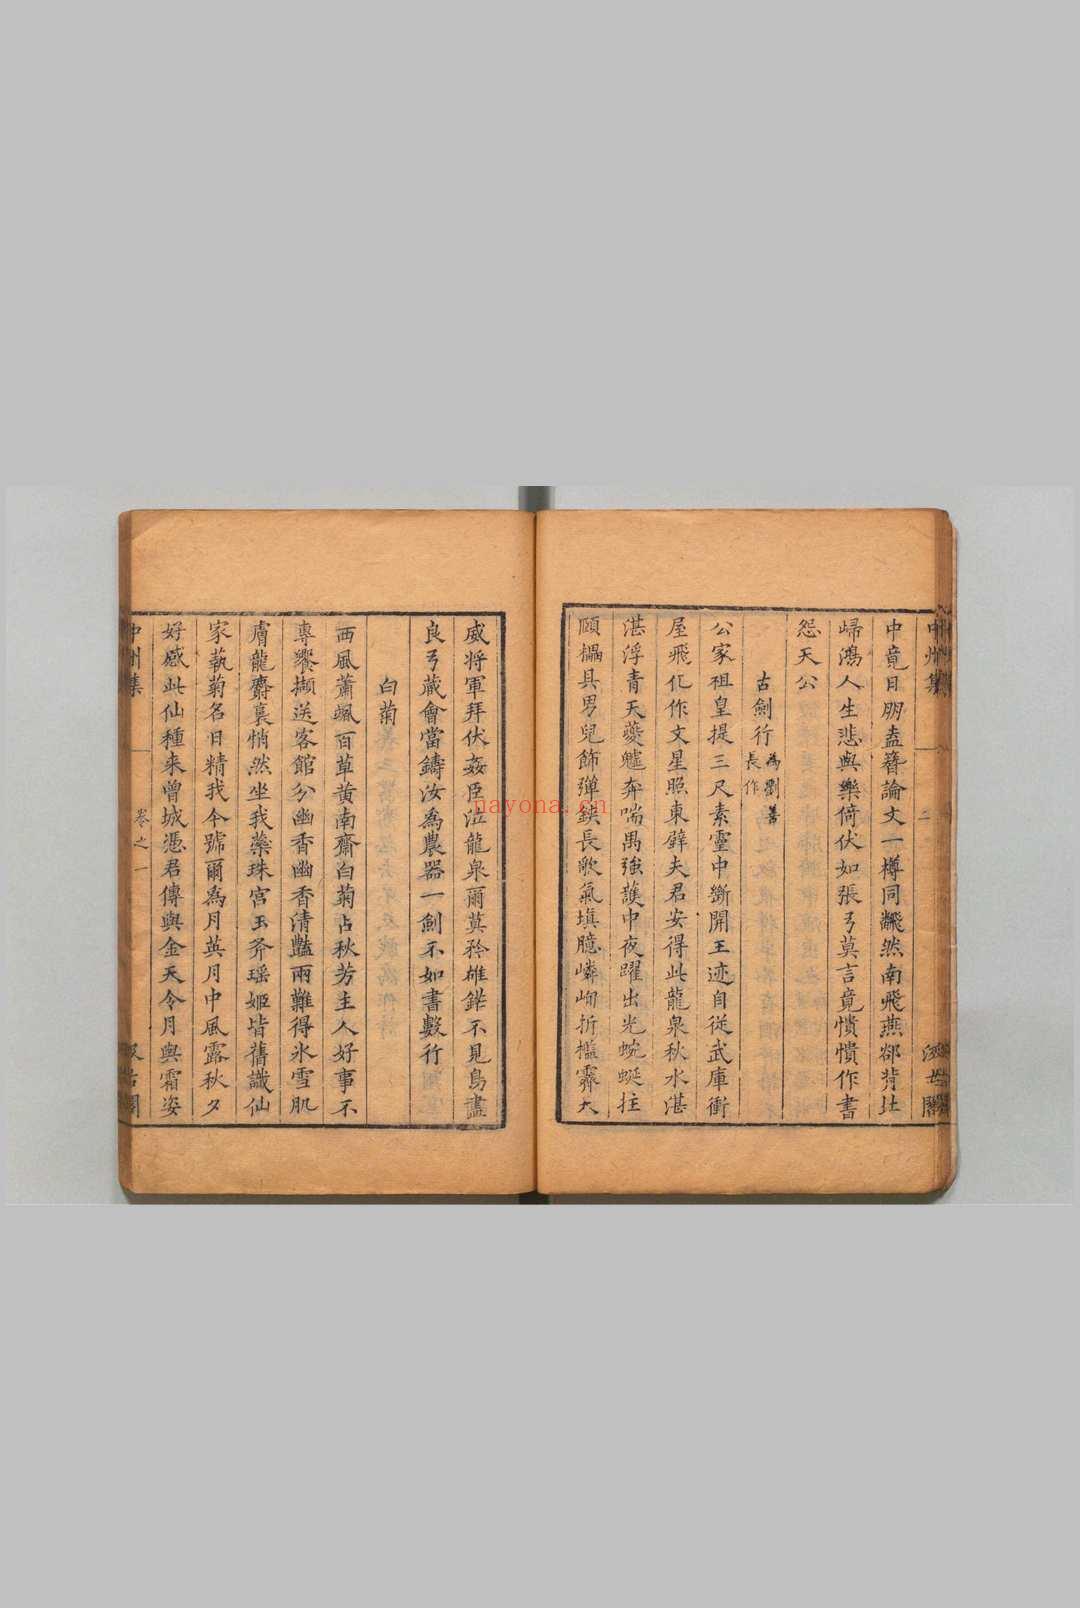 中州集
二
汲古閣
中竟日朋盍簪論文一樽同飜然南飛燕郤背北
歸鴻人生悲與樂倚伏如張弓莫言竟憒憒作書
怨天公
古劍行為劉善長作
公家祖皇提三尺素靈中斷開王迹自從武庫衝
屋飛化作文星照東壁夫君安得此龍泉秋水湛
湛浮青天夔魖奔喘禺強護中夜躍出光蜿蜒拄
頤櫑具男兒飾彈鋏長歌氣塡臆嶙峋折檻霽大
威將軍拜伏姦臣泣龍泉爾莫矜雄鋩不見鳥盡
良弓藏會當鑄汝為農器一劍不如書數行
白菊
西風蕭颯百草黄南齋白菊占秋芳主人好事不
專饗擷送客館分幽香幽香清豔兩難得氷雪肌
膚龍麝裏悄然坐我蘂珠宮玉斧瑶姬皆舊識仙
家執菊名日精我今號爾為月英月中風露秋夕
好感此仙種来曾城憑君傳與金天令月與霜姿
中州集
卷之一
汲古閣
nayona.cn